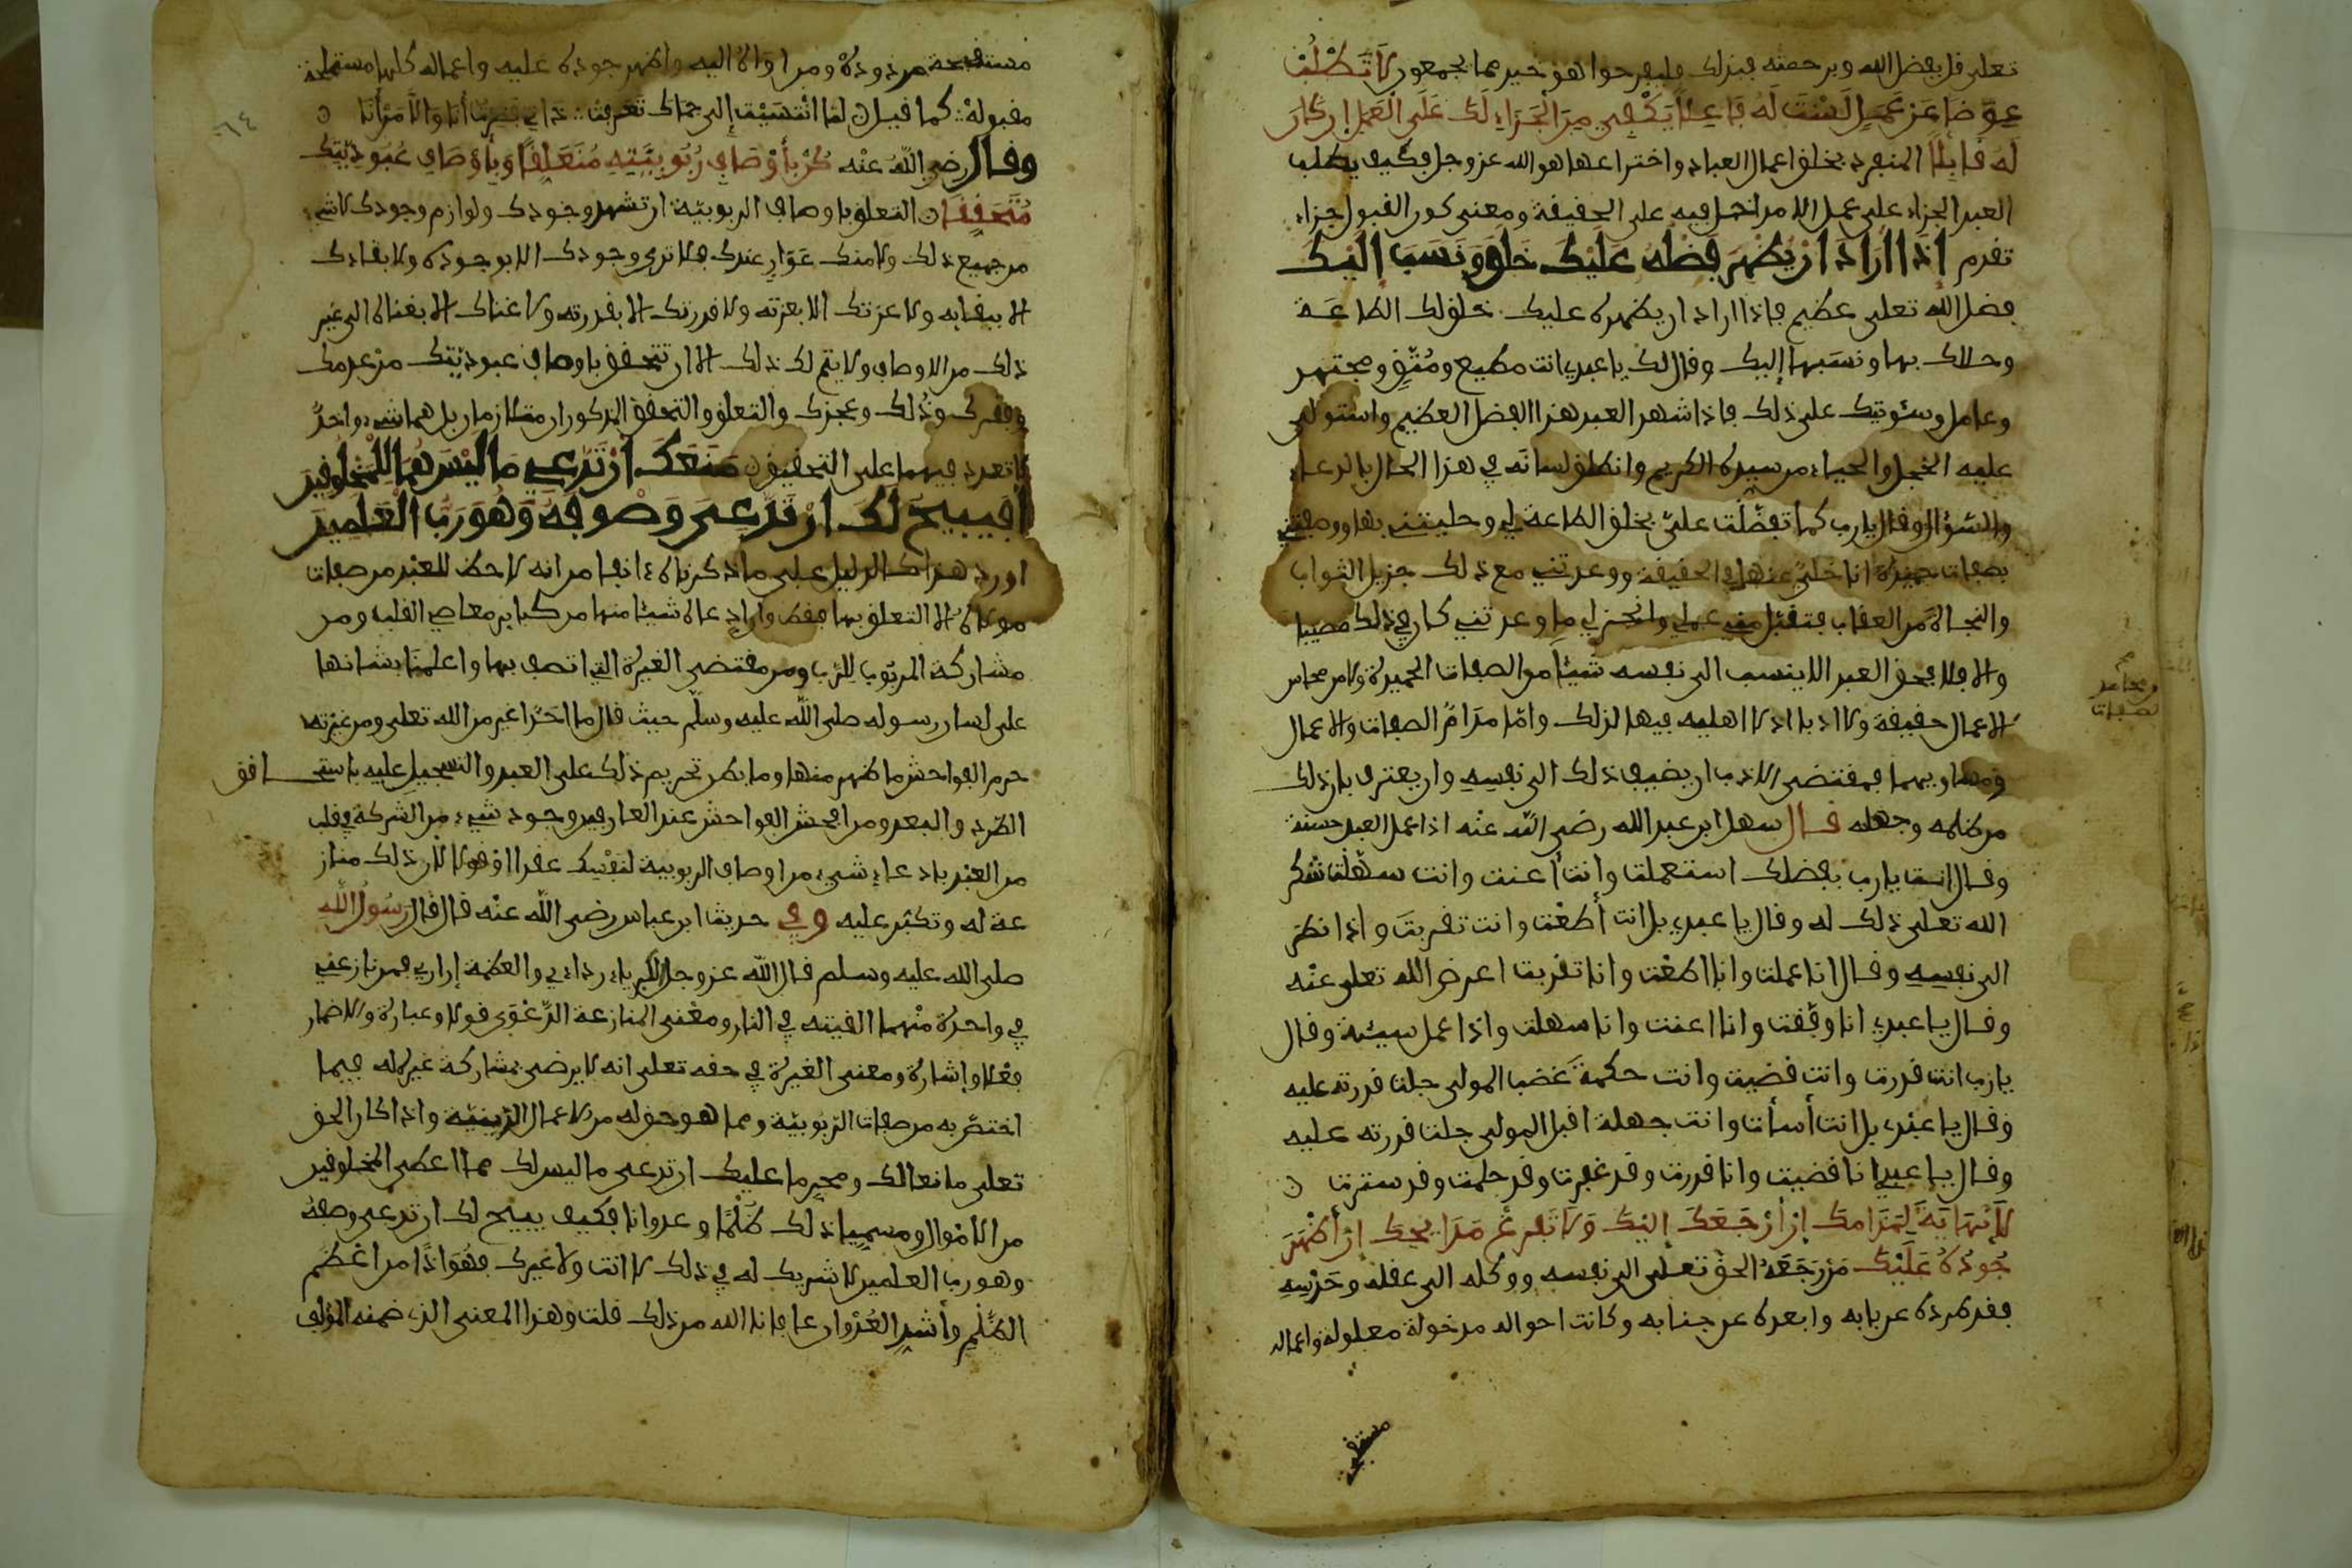 تعلى قل بفضل الله وبرحمته فبذلك فليفرحوا هو خير مما يجمعون لا تَطْلُبْ
عِوَضا عَن عَمَلٍ لَسْتَ لَهُ فَاعِلًا يَكْفِي مِنَ الْجَزَاءِ لَكَ عَلَى الْعَمَلِ إن كان
لَهُ قَابِلًا المنفرد بخلق اعمال العباد واختراعها هو الله عز وجل فكيف يطلب
العبد الجزاء على عمل الامر انحل فيه على الحقيقة ومعنى كون القبول جزاء
تقدم إِذَا ارَادَ انْ يُظْهِرَ فَضْلَهُ عَلَيْكَ خَلَقَ وَنَسَبَ إِلَيْكَ
فضل الله تعلى عظيم فاذا اراد ان يظهره عليك خلق لك الطاعة
وحلاك بها ونسبها إليك وقال لك يا عبدي انت مطيع ومُتَّقٍ ومجتهد
وعامل وسئوتيك على ذلك فاذا شهد العبد هذا الفضل العظيم واستولى
عليه الخجل والحياء من سيده الكريم وانطلق لسانه في هذا الحال بالدعاء
والسؤال وقال يا رب كما تفضّلت علىّ بخلق الطاعة لي وحليتني بها ووصفتني
بصفات حميدة انا خَلِيٌّ عنها في الحقيقة ووعدتني مع ذلك جزيل الثواب
والنجاة من العقاب فتقبّل مني عملي وانجز لي ما وعدتني كان في ذلك مصيبا
والا فلا فحق العبد الا ينسب الى نفسه شيئا من الصفات الحميدة ولا من محاسن
الاعمال حقيقة ولا ادبا اذ لا اهلية فيها لذلك وامّا مذامّ الصفات والاعمال
ومساويهما فمقتضى الادب ان يضيف ذلك الى نفسه وان يعترف بان ذلك
من ظلمه وجهله قال سهل ابن عبد الله رضى الله عنه اذا عمل العبد حسنة
وقال انت يا رب بفضلك استعملت وانت أعنت وانت سهّلت شكر
الله تعلى ذلك له وقال يا عبدي بل انت أطعت وانت تقربت واذا نظر
الى نفسه وقال انا عملت وانا اطعت وانا تقربت اعرض الله تعلى عنه
وقال يا عبدي انا وفّقت وانا اعنت وانا سهلت واذا عمل سيئة وقال
يا رب انت قدرت وانت قضيت وانت حكمت غضب المولى جلت قدرته عليه
وقال يا عبدي بل انت أسأت وانت جهلت اقبل المولى جلت قدرته عليه
وقال يا عبدي انا قضيت وانا قدرت وقد غفرت وقد حلمت وقد سترت
لا نِهَايَةَ لِمَذَامِكَ إِنْ أَرْجَعَكَ إِلَيْكَ وَلَا تَفْرُغُ مَدَايِحُكَ إِنْ أَظْهَرَ
جُودَهُ عَلَيْكَ مَن رَجَعَهُ الحق تعلى الى نفسه ووكله الى عقله وحَدْسِهِ
فقد طرده عن بابه وابعده عن جنابه وكانت احواله مدخولة معلولة واعماله
ومحاسن
مستقبحة
مستقبحة مرذودة ومن اوَاهُ اليه واظهر جوده عليه واعماله كلها مستملحة
مقبولة كما قيل لمّا انْتَسَبْتُ إلى حِمَاكَ تَعَرَّفَتْ ذَاتِي فَصِرْتُ أَنَا وَإِلَّا مَنْ أَنَا
وقال رضي اللهُ عنه كُنْ بِأَوْصَافِ رُبُوبِيَّتِهِ مُتَعَلِّقًا وَبِأَوْصَافِ عُبُودِيَّتِكَ
مُتَحَقِّقًا التعلق باوصاف الربوبيّة ان تشهد وجودك ولوازم وجودك لا شيء
من جميع ذلك ولا منك عَوَارٍ عندك فلا ترى وجودك الا بوجوده ولا بقاءك
الا ببقايه ولا عزتك الا بعزته ولا قدرتك الا بقدرته ولا غناك الا بغناه الى غير
ذلك من الاوصاف ولا يتم لك ذلك الا ان تتحقق باوصاف عبوديّتك من عدمك
وفقرك وذُلك وعجزك والتعلق والتحقق المذكوران متلازمان بل هما شيء واحدٌ
لا تعدد فيهما على التحقيق مَنَعَكَ أنْ تَدَّعِيَ مَا لَيْسَ لَكَ مِمَّا لِلْمَخْلُوقِينَ
أفَيُبِيحُ لَكَ انْ تَدَّعِيَ وَصْفَهُ وَهُوَ رَبُّ الْعَلَمِينَ
اورد هذا كالدليل على ما ذكرناه ءانفا من انه لا حظ للعبد من صفات
مولاه الا التعلق بها فقط وان ادعاه شيئا منها من كباير معاصي القلب ومن
مشاركة المربوب للرّب ومن مقتضى الغيرة التي اتصف بها واعلمنا بشانها
على لسان رسوله صلى اللّه عليه وسلّم حيث قال ما احَدٌ اغير من الله تعلى ومن غيرته
حرم الفواحش ما ظهر منها وما بطن تحريم ذلك على العبد والتسجيل عليه باستحقاق
الطرد والبعد ومن افحش الفواحش عند العارفين وجود شيء من الشركة في قلب
من العبد بادعاء شيء من اوصاف الربوبية لنفسك عقدا او قولا لان ذلك مناز
عة له وتكبّر عليه وفي حديث ابن عباس رضى الله عنه قال قال رَسُولُ اللّه
صلى الله عليه وسلم قال اللّه عز وجل الكبرياء رداءي والعظمة إزاري فمن نازعني
في واحدة منْهما القيته في النار ومعْنى المنازعة الدَّعْوَى قولا وعبارة والاضمار
فِعْلا وإشارة ومعنى الغيرة في حقه تعلى انه لا يرضى بمشاركة غيره له فيما
اختصّ به من صفات الرّبوبيّة ومما هو حق له من الاعمال الدّينيّة واذا كان الحق
تعلى مانعا لك ومحرِما عليك ان تدعى ما ليس لك مما اعطى المخلوقين
من الامْوال ومسميا ذلك ظُلْمًا وعدوانا فكيف يبيح لك ان تدعى وصفه
وهو رب العلمين لا شريك له في ذلك لا انت ولا غيرك فهُوَ اذًا من اعْظم
الظُّلْمِ وأشد العُدْوان عافانا الله من ذلك قلت وهذا المعنى الذي ضمنه المؤلف
٦٤